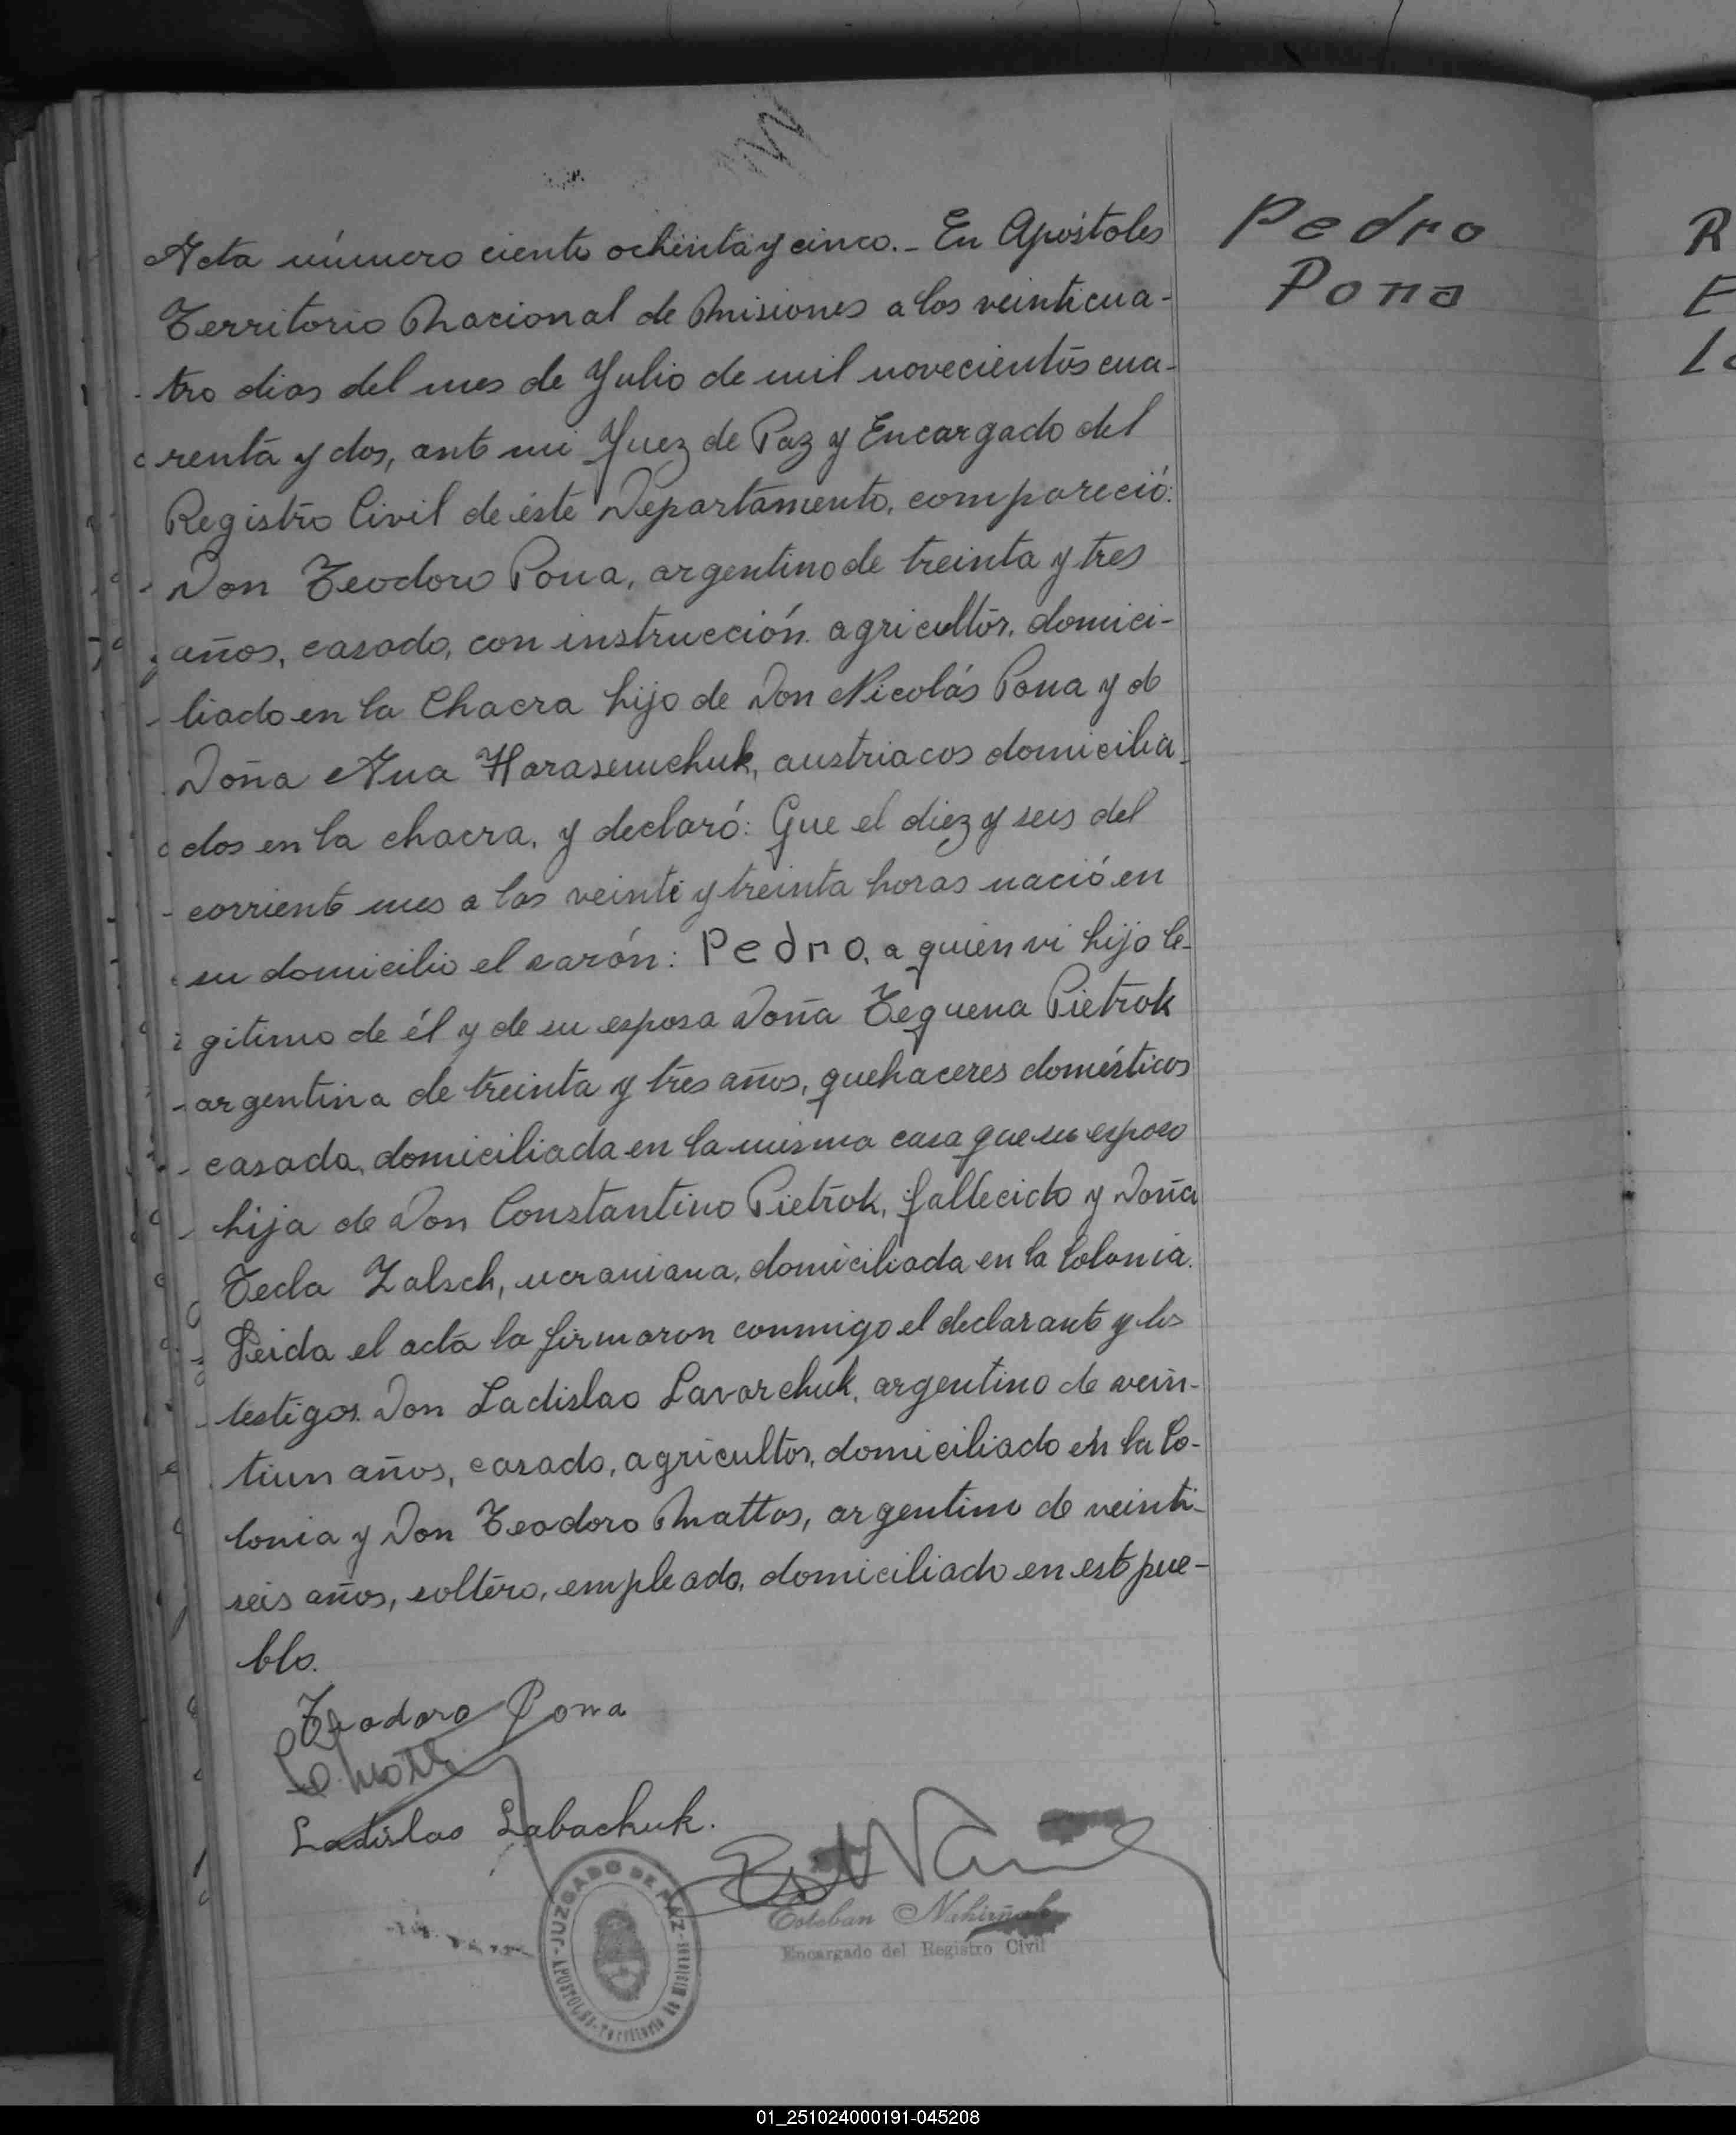 Acta número ciento ochenta y cinco.- En Apóstoles
Territorio Nacional de Misiones a los veinticua-
tro dias del mes de Julio de mil novecientos cua-
renta y dos, ante mi Juez de Paz y Encargado del
Registro Civil de éste Departamento, compareció:
Don Teodoro Pona, argentino de treinta y tres
años, casado, con instrucción agricultor, domici-
liado en la Chacra hijo de Don Nicolás Pona y de
Doña Ana Harasemchuk, austriacos domicilia-
dos en la chacra, y declaró: Que el diez y seis del
corriente mes a las veinte y treinta horas nació en
su domicilio el varón: Pedro, a quien vi hijo le-
gitimo de él y de su esposa Doña Teguena Pietrok
argentina de treinta y tres años, quehaceres domésticos
casada, domiciliada en la misma casa que su esposo
hija de Don Constantino Pietrok, fallecido y Doña
Tecla Zalsch, ucraniana, domiciliada en la Colonia.
Leida el acta la firmaron conmigo el declarante y los
testigos Don Ladislao Lavarchuk, argentino de vein-
tiun años, casado, agricultor, domiciliado en la Co-
lonia y Don Teodoro Mattos, argentino de veinti-
seis años, soltero, empleado, domiciliado en este pue-
blo.
Pedro
Pona
R
E
Teodoro Pona
Ladislao Labachuk.
JUZGADO DE PAZ
APOSTOLES - Territorio de Misiones
Esteban Nahirñak
Encargado del Registro Civil
01_251024000191-045208